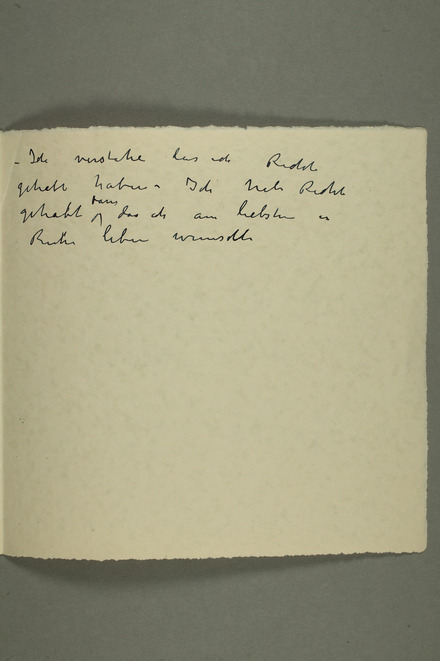 - Ich verstehe das ich Recht
gehabt haben. Ich hab Recht
gehabt dass das ich am liebsten in
Ruhe leben wünsche